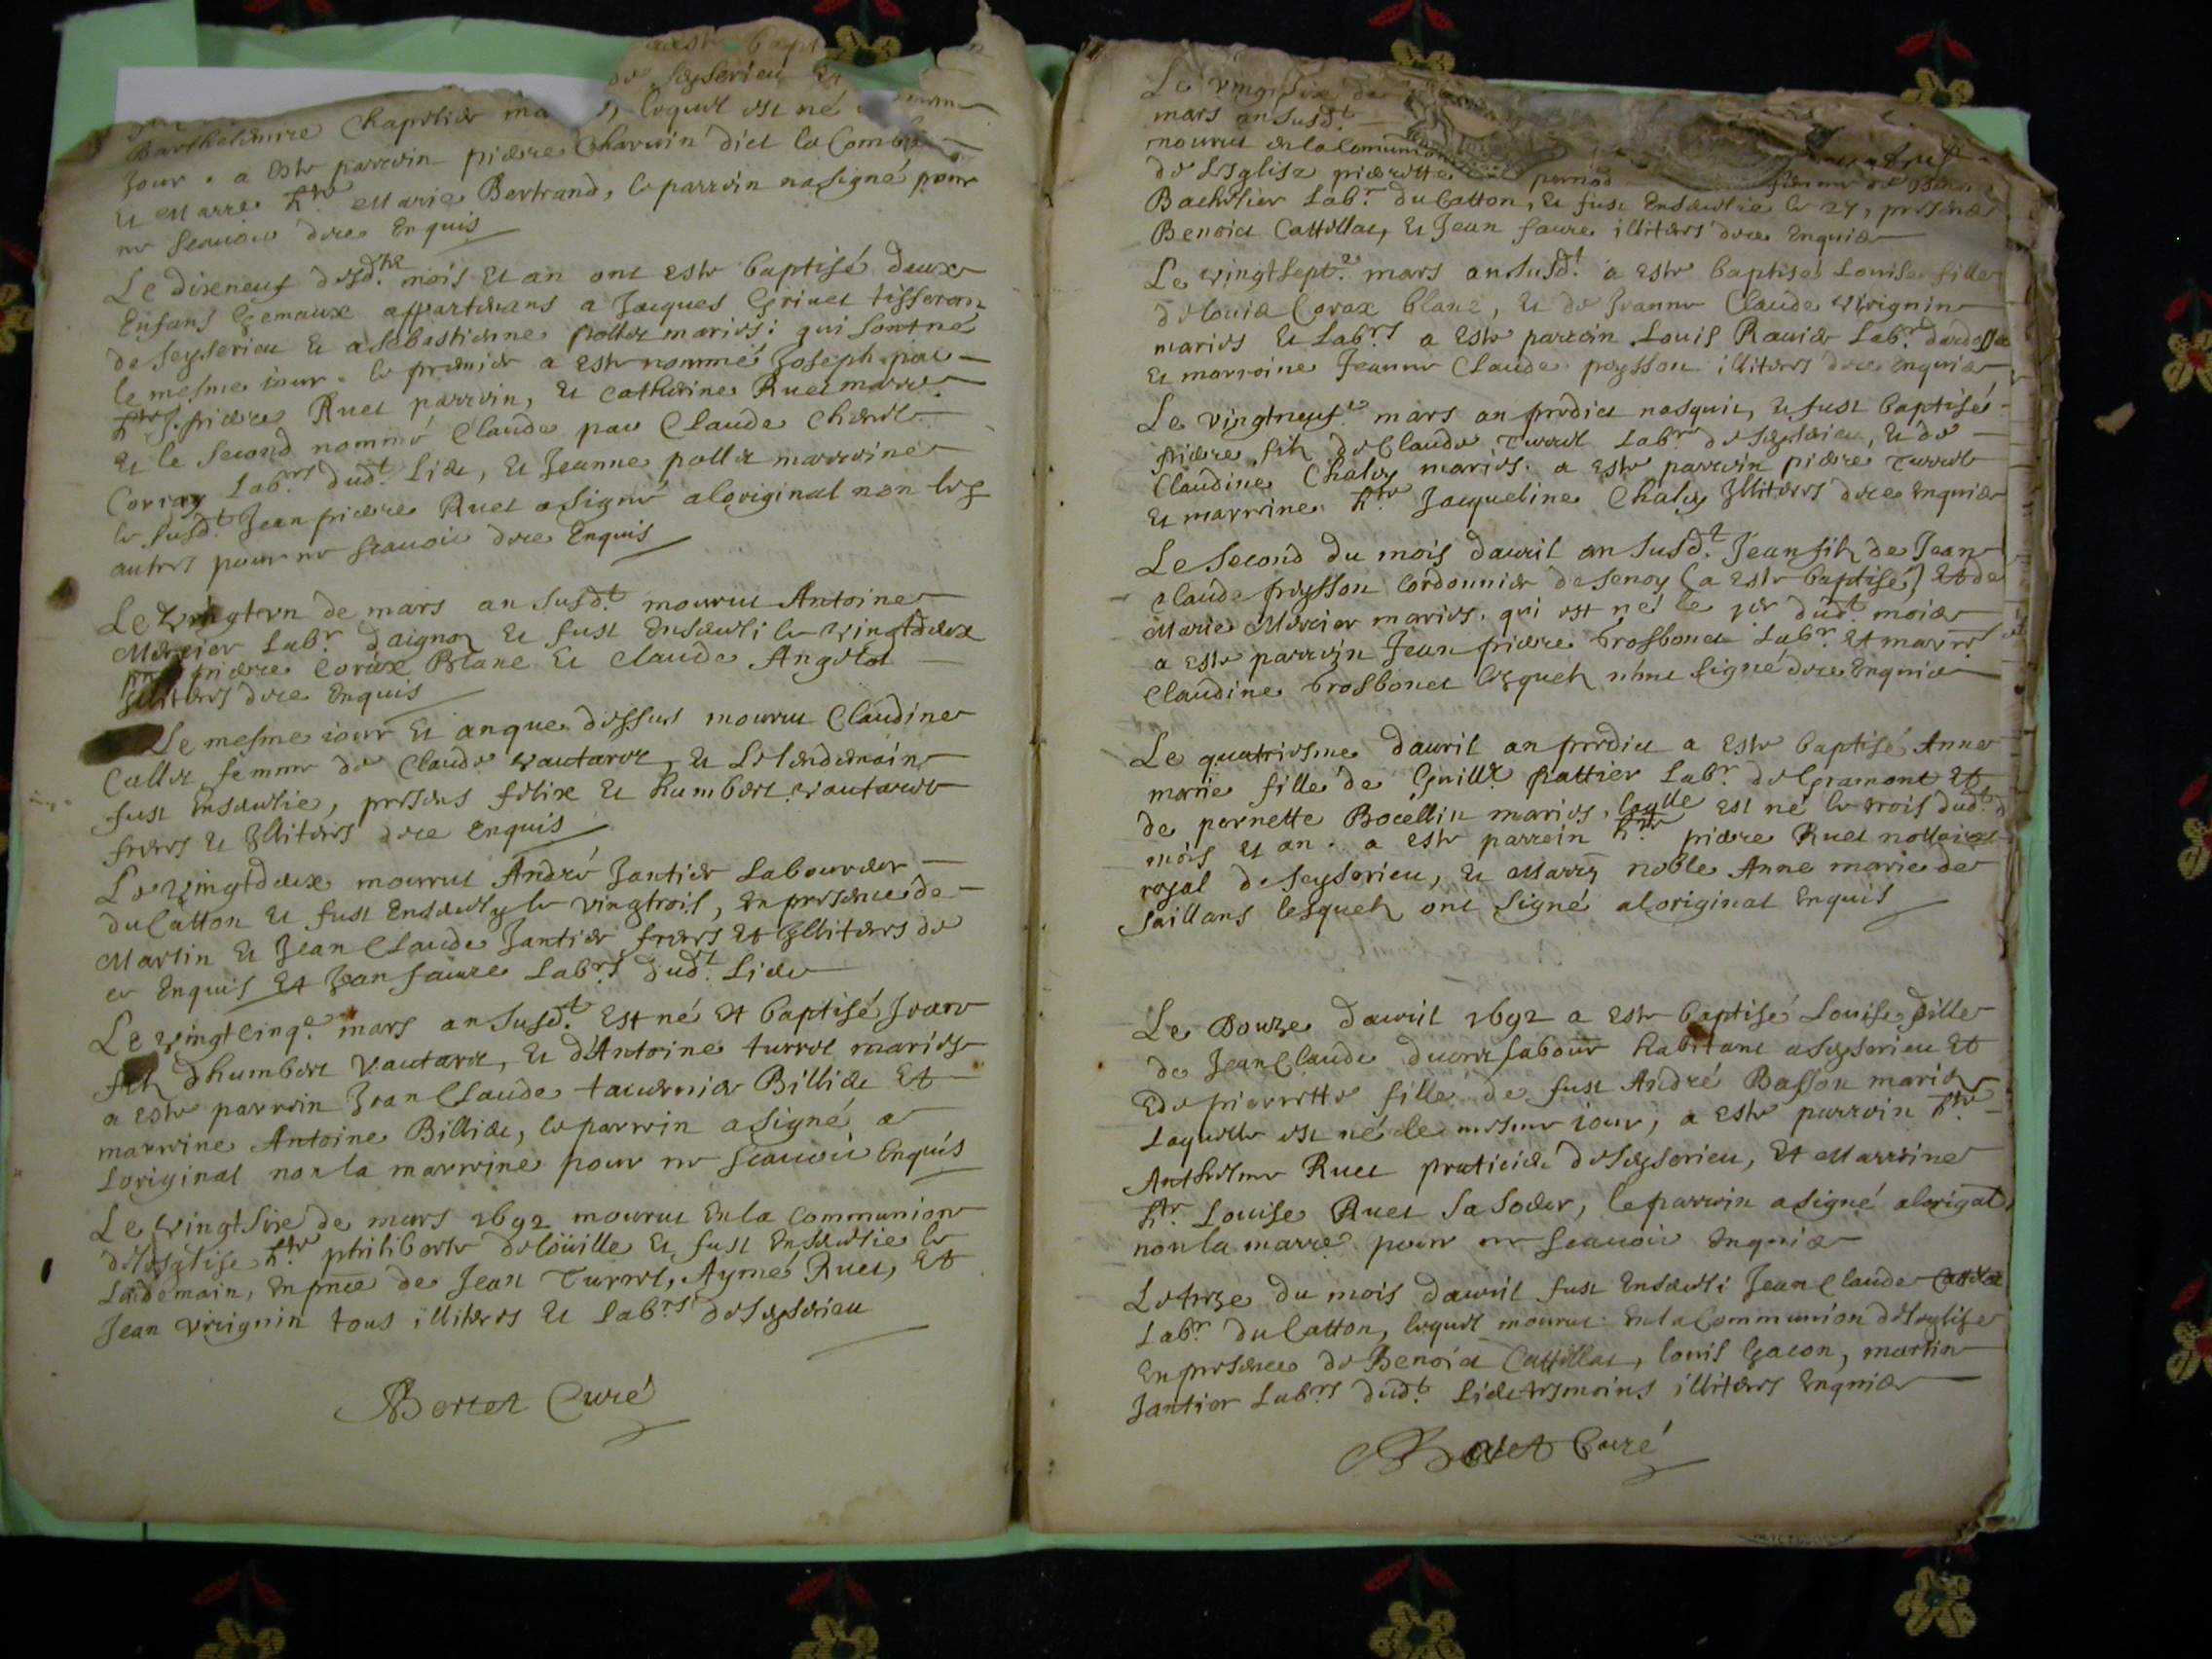 a esté bapt
de Seyserieu Et
Barthelemire Chapelier ma lequel est né
Jour. a esté parrein pierre Charvin dict la Combe
Et Marre. hte Marie Bertrand, le parrein na signé pour
ne scavoir dece Enquis
Le dixneuf desd.ts mois Et an ont esté baptisé deux
Enfans Gemaux appartenans a Jacques Grivet tisseran
de Seyserieu Et a Sebastienne pollet mariés: qui sont né
le mesme iour. le premier a esté nommé Joseph par
hte J. pierre Ruet parrein, Et Catherine Ruet marre.
Et le Second nommé Claude par Claude
Labrs dudt. lieu, Et Jeanne pollet marreine
le susdt. Jean pierre Ruet a signé a loriginal non les
autres pour ne scavoir dece Enquis
Le vingtvn de mars an susdt. mourut Antoine
Mercier Labr. daignoz Et fust Ensevely le vingtdeux
pierre Corax Blanc Et Claude Angelot
Illiteres dece Enquis
Le mesme iour Et an que dessus mourut Claudine
Collet femme de Claude Vautaret, Et Lelendemain
fust Ensevelie, presens felix Et humbert Vautaret
freres Et Illiteres dece Enquis
Le vingtdeux mourut André Jantier Laboureur
du Catton Et fust Ensevely le vingtrois, En presence de
Martin Et Jean Claude Jantier freres Et Illiteres de
ce Enquis Et Jean faure Labrs dudt. Lieu
Le vingtcinqe mars an susdt. Est né Et baptisé Jean
filz dhumbert Vautaret, Et d'Antoine turrel mariés
a esté parrein Jean Claude tavernier Billiet Et
marreine Antoine Billiet, le parrein a signé a
Loriginal non la marreine pour ne scavoir Enquis
Le vingtsix de mars 1692 mourut En la Communion
de lesglise hte philiberte deloüille Et fust Ensevelie le
Lendemain, En pnce de Jean Turrel, Aymé Ruet, Et
Jean vrignin tous illiteres Et Labrs de Seyserieu
Bertet Curé
Le vingtsix de
mars an susdt.
mourut en la Comunion
de Lesglise pierrette pernod femme de
Bachelier Labr. du Catton, Et fust Ensevelie le 27, presens
Benoict Cattillat, Et Jean faure illiteres dece Enquis
Le vingtsepte mars an susdt. a esté baptisé Louise fille
de Louis Corax blanc, Et de Jeanne Claude virignin
mariés Et Labrs a esté parrein Louis Ravier Labr.
Et marreine Jeanne Claude peysson illiteres dece Enquis
Le vingtneufe mars an predict nasquit, Et fust baptisé
pierre filz de Claude Turrel Labr de Seyserieu, Et de
Claudine Chaley mariés. a esté parrein pierre Turrel
Et marreine hte Jacqueline Chaley Illiteres dece Enquis
Le Second du mois davril an susdt. Jean filz de Jean
Claude peysson Cordonnier de Senoy (a esté baptisé) Et de
Marie Mercier mariés, qui est né le 1er dudt. mois
a esté parrein Jean pierre brosbonet Labr. Et marre.
Claudine brosbonet lesquelz n'ont signé dece Enquis
Le quatriesme davril an predict a esté baptisé Anne
marie fille de Guille pattier Labr. de Gramont Et
de pernette Bocellin mariés, laqlle est né le trois dudt.
mois Et an. a esté parrein hte pierre Ruet nottaire
royal de Seyserieu, Et Marre noble Anne marie de
Saillans lesquelz ont signé a loriginal Enquis
Le Douze davril 1692 a esté baptisé Louise fille
de Jean Claude ducret labour habitant a Seyserieu Et
de pierrette fille de fust André Basson mariés
Laquelle est né le mesme iour, a esté parrein hte
Anthelme Ruet praticien de Seyserieu, Et Marreine
hte. Louise Ruet Sa Soeur, le parrein a signé a lorigal,
non la marre pour ne scavoir Enquis
Letreze du mois davril fust Enseveli Jean Claude
Labr. du Catton, lequel mourut En la Communion de leglise
En presence de Benoict Cattillat, louis Gacon, martin
Jantier Labrs dudt. Lieu tesmoins illiteres Enquis
Bertet Curé